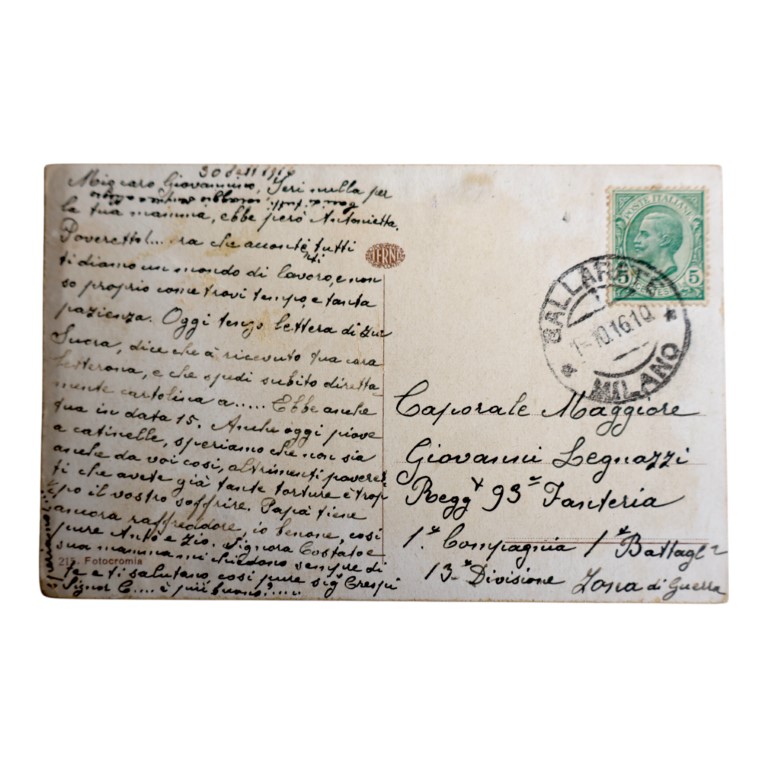 30 1916
Mio caro Giovannino, Ieri nulla per
la tua mamma, ebbe però Antonietta.
Poveretto!... ra che acconte tutti
ti diamo un mondo di lavoro, e non
so proprio come trovi tempo, e tanta
pazienza. Oggi tengo lettera di zia
dice che à ricevuto tua cara
e che spedì subito diretta-
mente cartolina a..... Ebbe anche
tua in data 15. Anche oggi piove
a catinelle, speriamo che non sia
anche da voi così, altrimenti poveret-
ti che avete già tante torture è trop
po il vostro soffrire. Papà tiene
ancora raffreddore, io benone, così
pure Anto e Zio. Signora Costato e
sua mamma mi chiedono sempre di
te e ti salutano, così pure sigr Crespi
Signor C.... è più buono?.....
speriamo
TERNI
219. Fotocromia
POSTE ITALIANE
5 5
GALLARATE
1-10.16 10
* MILANO *
Caporale Maggiore
Giovanni Legnazzi
Reggt 93a Fanteria
1a Compagnia 1° Battagln
13a Divisione Zona di Guerra